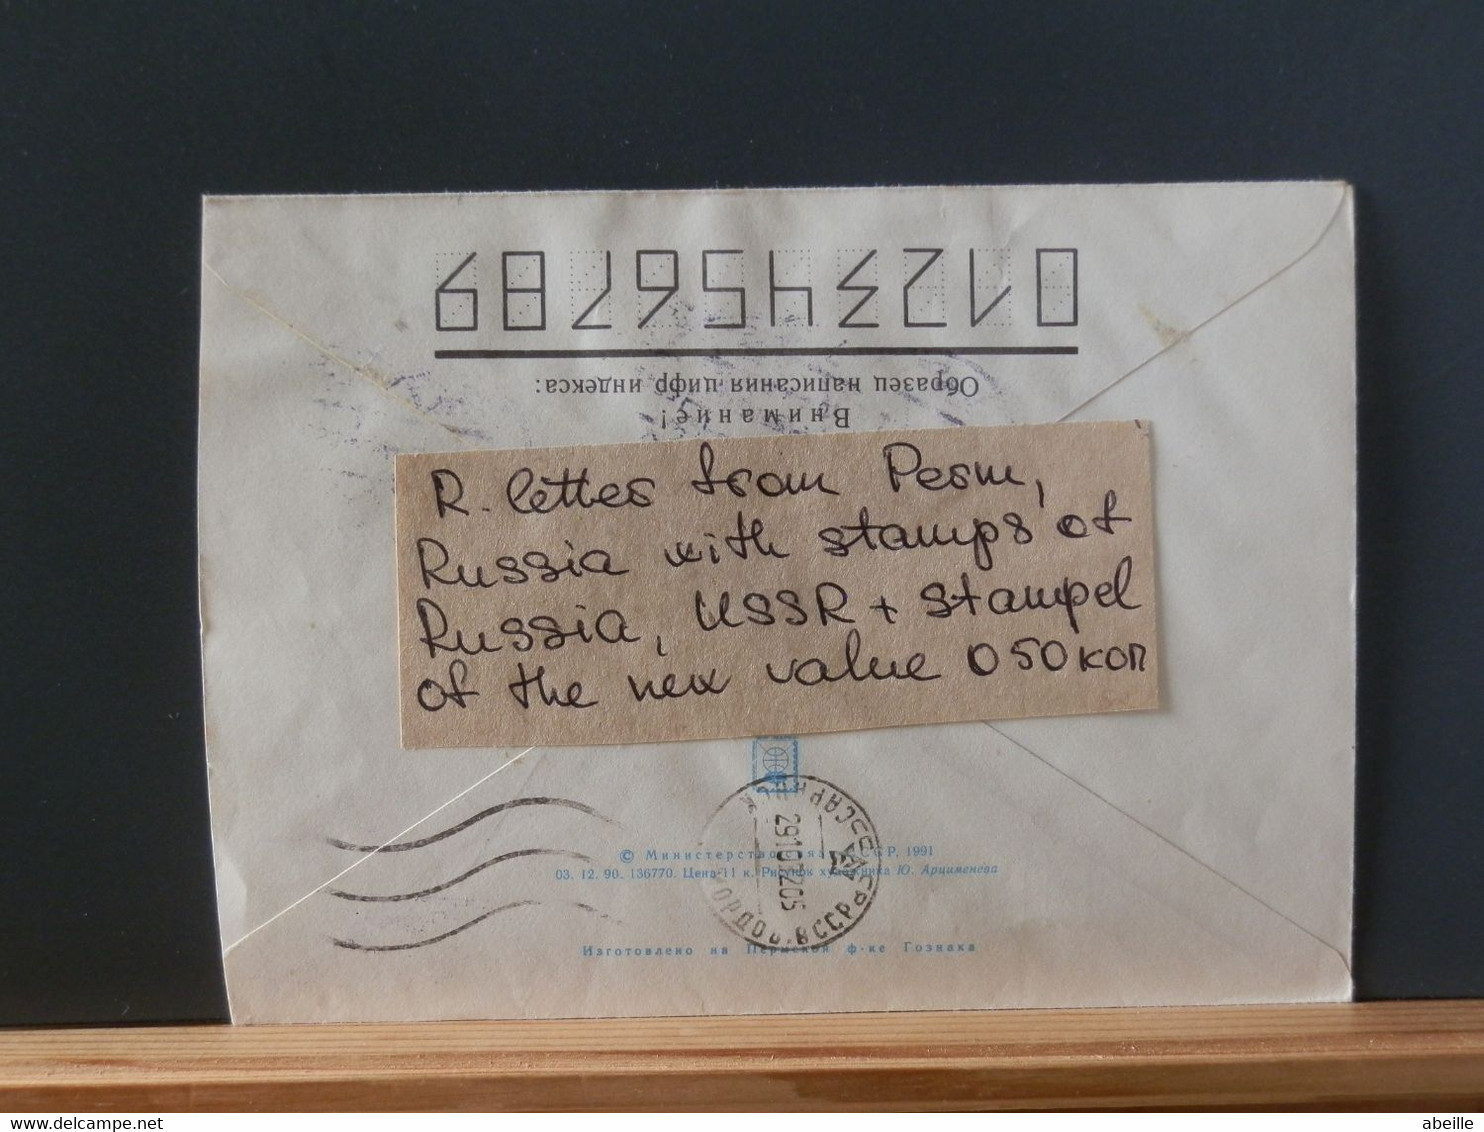 0123456789
Образец написания цифр индекса:
Внимание!
R. letter from Perm,
Russia with stamps of
Russia, USSR + stampel
of the new value 050коп
© Министерство связи СССР, 1991
03. 12. 90. 136770. Цена 11 к. Рисунок художника Ю. Арцименева
Изготовлено на Пермской ф-ке Гознака
abeille